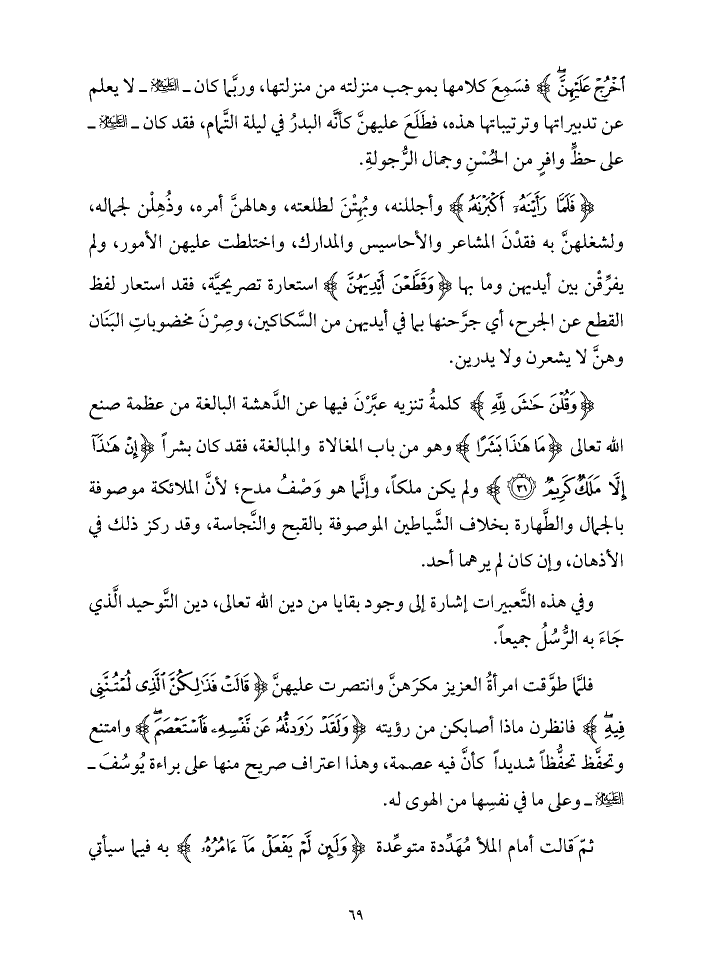 ٱخۡرُجۡ عَلَيۡهِنَّۖ ﴾ فسَمِعَ كلامها بموجب منزلته من منزلتها، وربَّما كان ـ عليه السلام ـ لا يعلم
عن تدبيراتها وترتيباتها هذه، فطَلَعَ عليهنَّ كأنَّه البدرُ في ليلة التَّمام، فقد كان ـ عليه السلام ـ
على حظٍّ وافرٍ من الحُسْنِ وجمال الرُّجولةِ.
﴿ فَلَمَّا رَأَيۡنَهُۥٓ أَكۡبَرۡنَهُۥ ﴾ وأجللنه، وبُهِتْنَ لطلعته، وهالهنَّ أمره، وذُهِلْن لجماله،
ولشغلهنَّ به فقدْنَ المشاعر والأحاسيس والمدارك، واختلطت عليهن الأمور، ولم
يفرِّقْن بين أيديهن وما بها ﴿ وَقَطَّعۡنَ أَيۡدِيَهُنَّ ﴾ استعارة تصريحيَّة، فقد استعار لفظ
القطع عن الجرح، أي جرَّحنها بما في أيديهن من السَّكاكين، وصِرْنَ مخضوباتِ البَنَان
وهنَّ لا يشعرن ولا يدرين.
﴿ وَقُلۡنَ حَٰشَ لِلَّهِ ﴾ كلمةُ تنزيه عبَّرْنَ فيها عن الدَّهشة البالغة من عظمة صنع
الله تعالى ﴿ مَا هَٰذَا بَشَرًا ﴾ وهو من باب المغالاة والمبالغة، فقد كان بشراً ﴿ إِنۡ هَٰذَآ
إِلَّا مَلَكٞ كَرِيمٞ ٣١ ﴾ ولم يكن ملكاً، وإنَّما هو وَصْفُ مدح؛ لأنَّ الملائكة موصوفة
بالجمال والطَّهارة بخلاف الشَّياطين الموصوفة بالقبح والنَّجاسة، وقد ركز ذلك في
الأذهان، وإن كان لم يرهما أحد.
وفي هذه التَّعبيرات إشارة إلى وجود بقايا من دين الله تعالى، دين التَّوحيد الَّذي
جَاءَ به الرُّسُلُ جميعاً.
فلمَّا طوَّقت امرأةُ العزيز مكرَهنَّ وانتصرت عليهنَّ ﴿ قَالَتۡ فَذَٰلِكُنَّ ٱلَّذِي لُمۡتُنَّنِي
فِيهِۖ ﴾ فانظرن ماذا أصابكن من رؤيته ﴿ وَلَقَدۡ رَٰوَدتُّهُۥ عَن نَّفۡسِهِۦ فَٱسۡتَعۡصَمَۖ ﴾ وامتنع
وتحفَّظ تحفُّظاً شديداً كأنَّ فيه عصمة، وهذا اعتراف صريح منها على براءة يُوسُفَ ـ
عليه السلام ـ وعلى ما في نفسِها من الهوى له.
ثمّ قالت أمام الملأ مُهَدِّدة متوعِّدة ﴿ وَلَئِن لَّمۡ يَفۡعَلۡ مَآ ءَامُرُهُۥ ﴾ به فيما سيأتي
٦٩